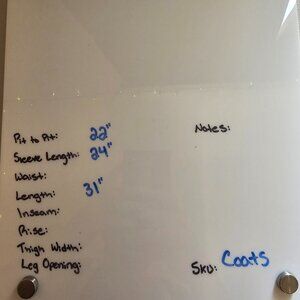 Pit to Pit: 22"
Sleeve Length: 24"
Waist:
Length: 31"
Inseam:
Rise:
Thigh Width:
Leg Opening:
Notes:
SKU: Coats